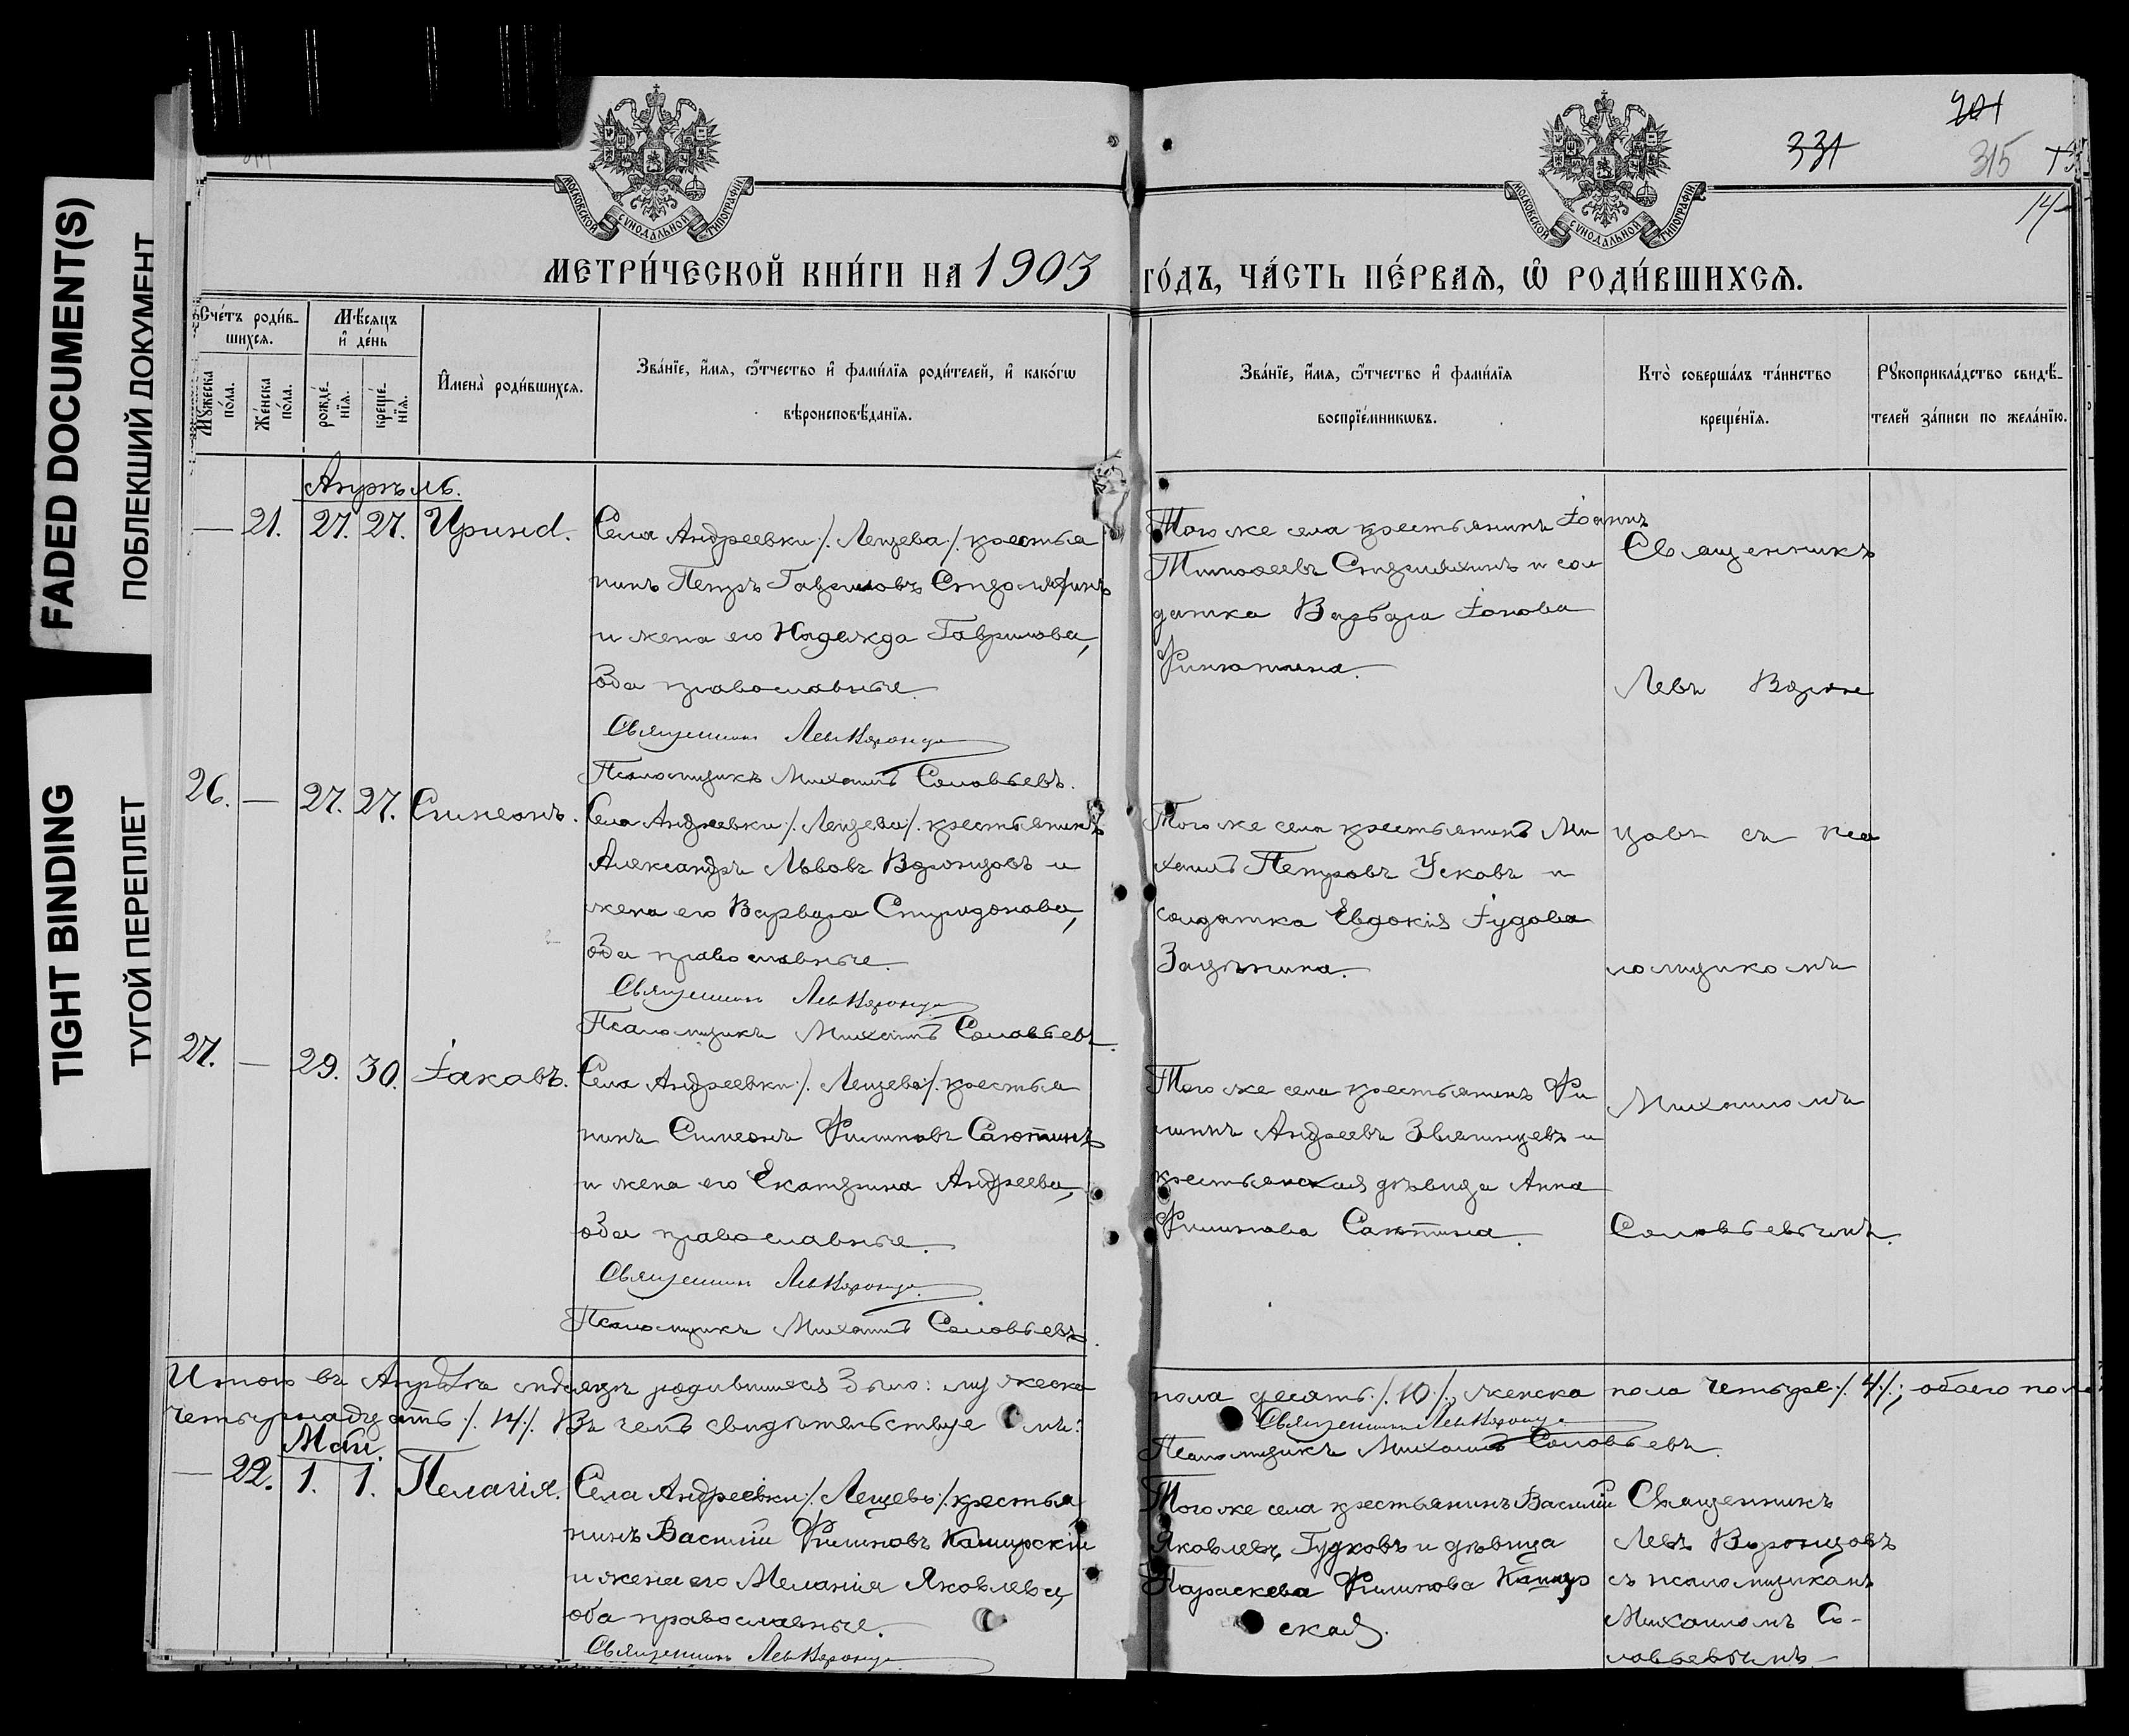 FADED DOCUMENT(S)
ПОБЛЕКШИЙ ДОКУМЕНТ
TIGHT BINDING
ТУГОЙ ПЕРЕПЛЕТ
МОСКОВСКОЙ СѴНОДАЛЬНОЙ ТИПОГРАФІИ
МОСКОВСКОЙ СѴНОДАЛЬНОЙ ТИПОГРАФІИ
331
201
315
14
МЕТРИ́ЧЕСКОЙ КНИ́ГИ НА 1903 ГО́ДЪ, ЧА́СТЬ ПЕ́РВАѦ, Ѽ РОДИ́ВШИХСѦ.
Сче́тъ роди́в-
шихсѧ.
Мꙋ́жеска
по́ла.
Же́нска
по́ла.
Мѣ́сѧцъ
и҆ де́нь
рожде́-
нїѧ.
креще́-
нїѧ.
И҆мена̀ роди́вшихсѧ.
Зва́нїе, и҆́мѧ, ѻ҆́тчество и҆ фами́лїѧ роди́телей, и҆ како́гѡ
вѣроисповѣ́данїѧ.
Зва́нїе, и҆́мѧ, ѻ҆́тчество и҆ фами́лїѧ
воспрїе́мникѡвъ.
Кто̀ соверша́лъ та́инство
креще́нїѧ.
Рꙋкоприкла́дство свидѣ́-
телей за́писи по жела́нїю.
Апрѣль.
— 21. 27. 27. Ирина.
Села Андреевки /. Лещева /. крестья
нинъ Петръ Гавриловъ
и жена его Надежда Гаврилова,
оба православные.
Священникъ Левъ Воронцо
Псаломщикъ Михаилъ Соловьевъ.
Того же села крестьянинъ Іоаннъ
Тимофеевъ и сол
датка Варвара Іонова
Священникъ
Левъ Ворон
26. — 27. 27. Симеонъ.
Села Андреевки /. Лещева /. крестьянинъ
Александръ Львовъ Воронцовъ и
жена его Варвара Спиридонова,
оба православные.
Священникъ Левъ Воронцо
Псаломщикъ Михаилъ Соловьевъ.
Того же села крестьянинъ Ми
хаилъ Петровъ Усковъ и
солдатка Евдокія Іудова
Зацепина.
цовъ съ пса
ломщикомъ
27. — 29. 30. Іаковъ.
Села Андреевки /. Лещева /. крестья
нинъ Симеонъ Филиповъ Саютинъ
и жена его Екатерина Андреева,
оба православные.
Священникъ Левъ Воронцо
Псаломщикъ Михаилъ Соловьевъ.
Того же села крестьянинъ Фи
липпъ Андреевъ Звягинцевъ и
крестьянская дѣвица Анна
Филипова Саютина.
Михаиломъ
Соловьевымъ.
Итого въ Апрѣлѣ мѣсяцѣ родившихся было: мужеска пола десять /. 10 /., женска пола четыре /. 4 /.; обоего пола
четырнадцать /. 14 /. Въ чемъ свидѣтельствуемъ:
Священникъ Левъ Воронцо
Псаломщикъ Михаилъ Соловьевъ.
Май.
— 22. 1. 1. Пелагія.
Села Андреевки /. Лещево /. крестья
нинъ Василій Филиповъ Каширскій
и жена его Меланія Яковлева,
оба православные.
Священникъ Левъ Воронцо
Того же села крестьянинъ Василій
Яковлевъ Гудковъ и дѣвица
Параскева Филипова Кашир
ская.
Священникъ
Левъ Воронцовъ
съ псаломщикомъ
Михаиломъ Со-
ловьевымъ —